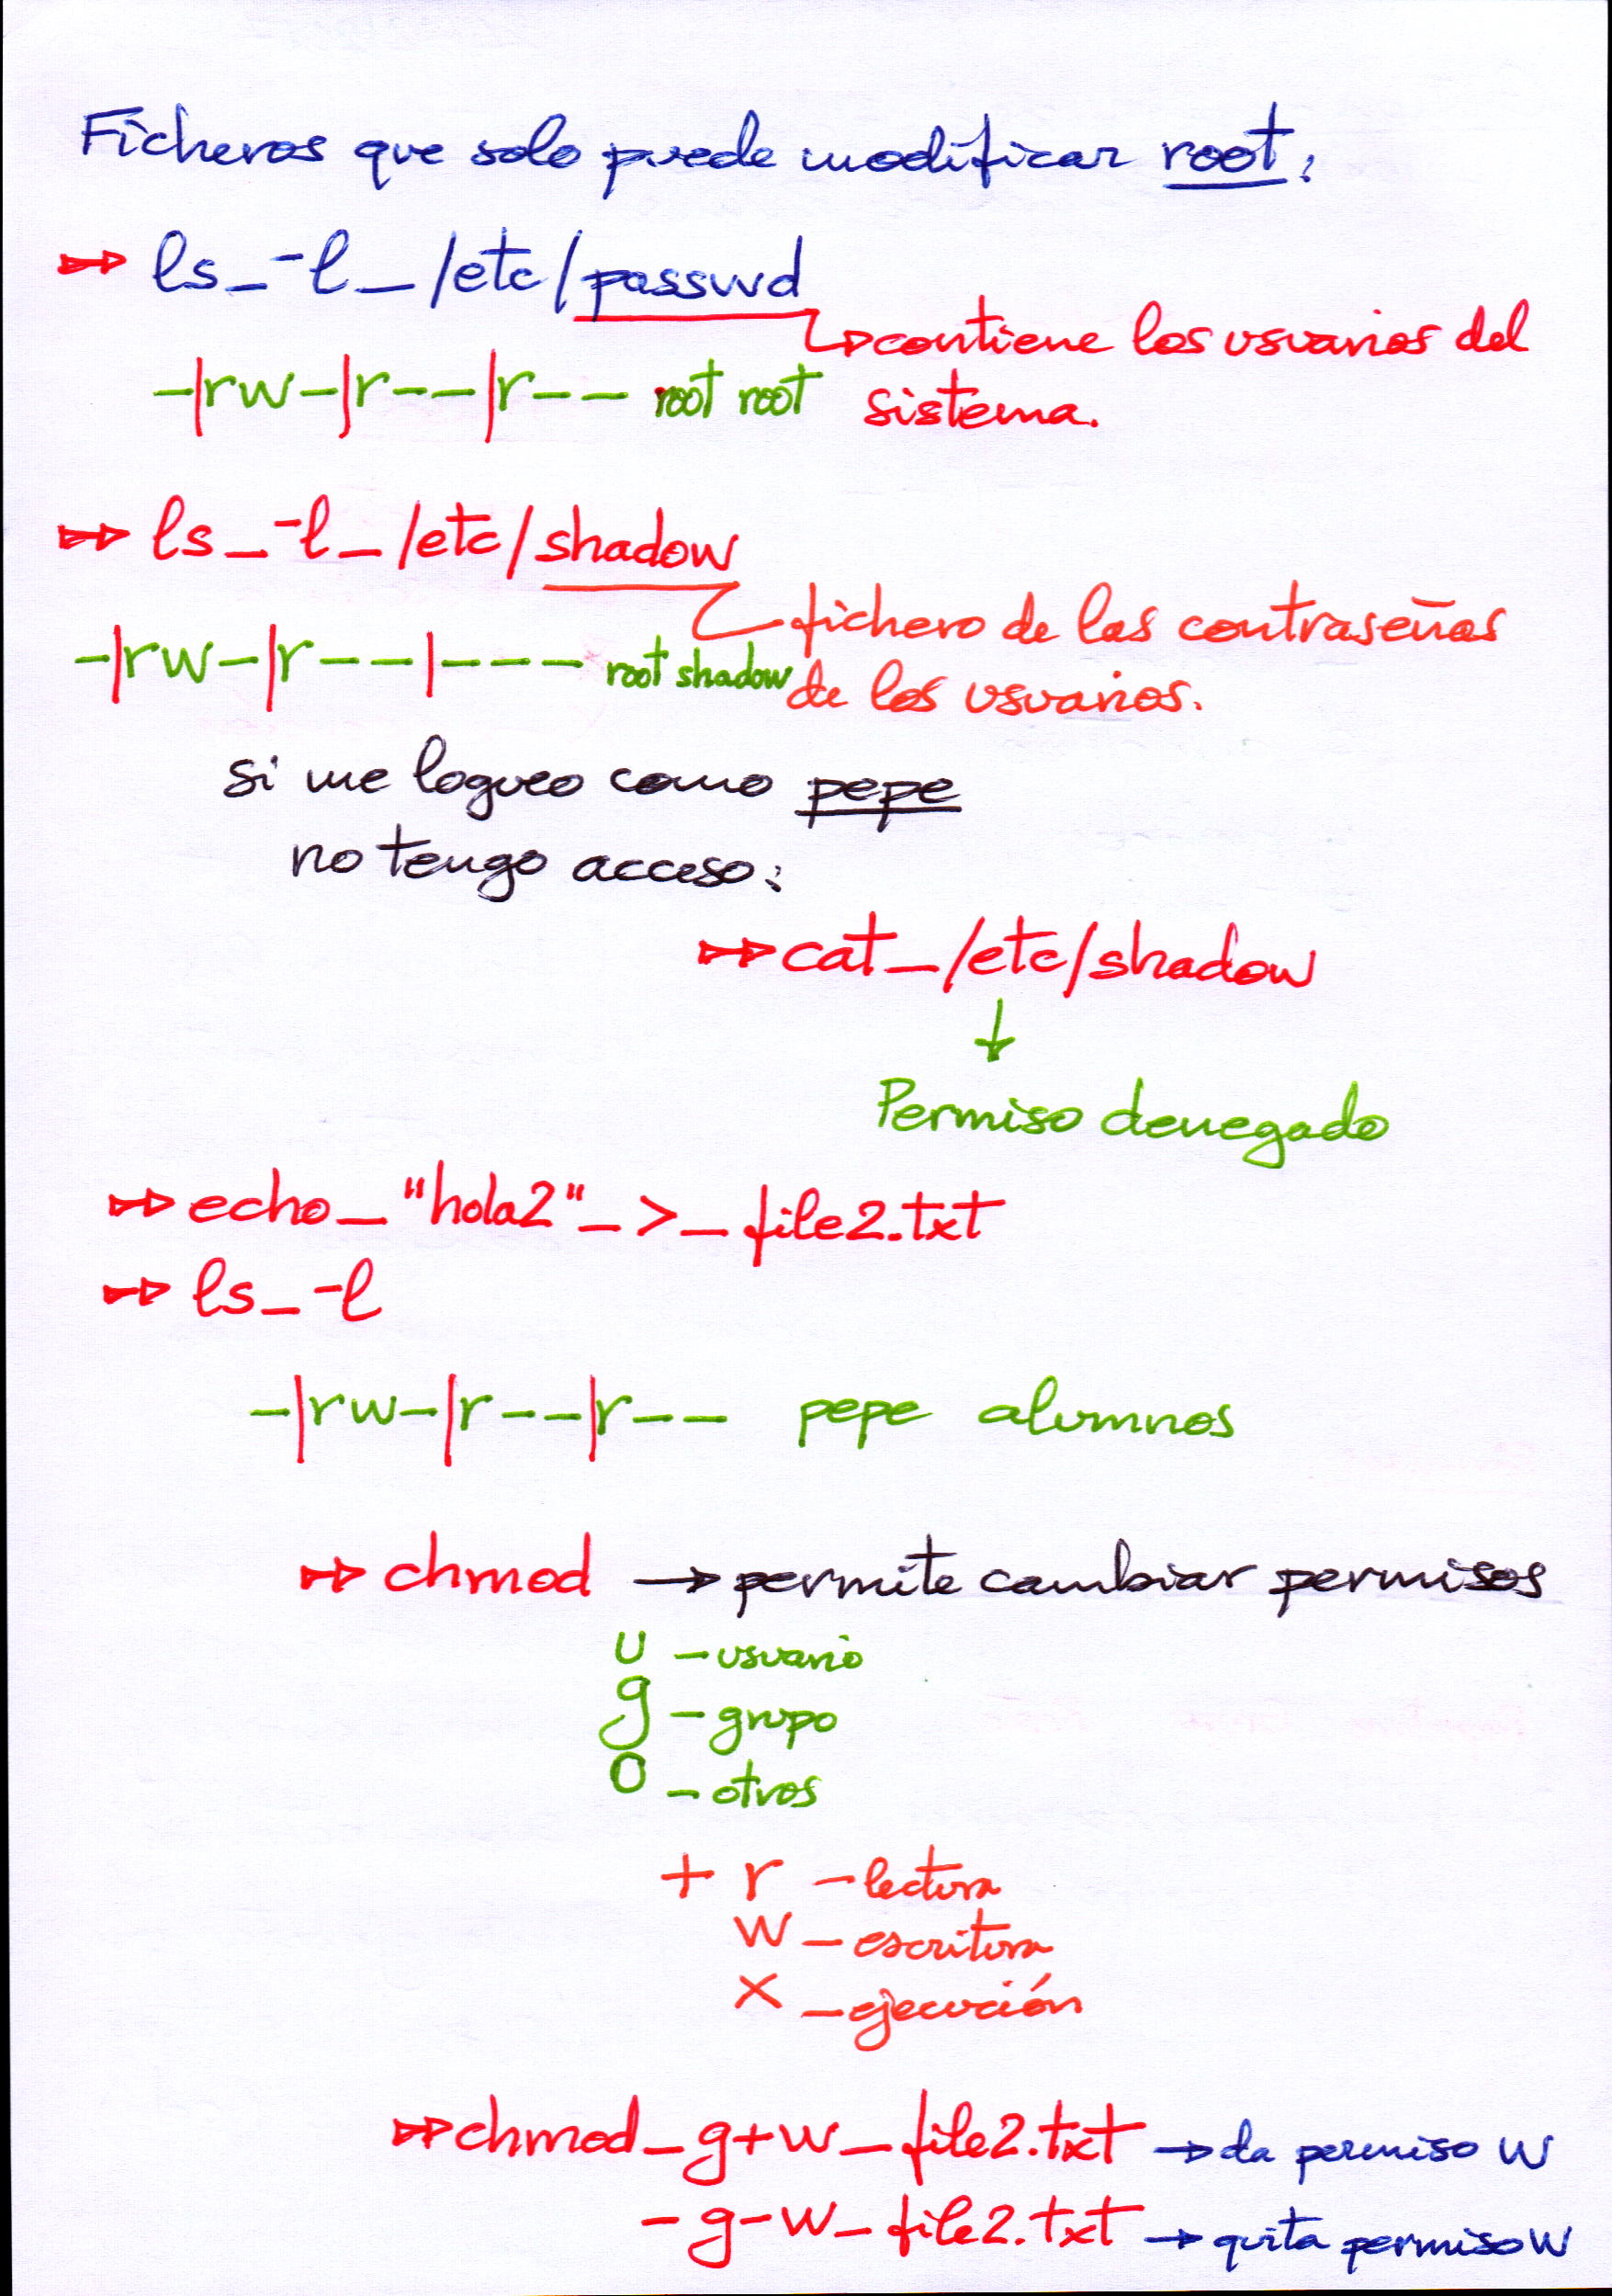 Ficheros que solo puede modificar root:
→ ls_-l_/etc/passwd
↳ contiene los usuarios del
-|rw-|r--|r-- root root sistema.
→ ls_-l_/etc/shadow
fichero de las contraseñas
-|rw-|r--|--- root shadow de los usuarios.
si me logueo como pepe
no tengo acceso:
→ cat_/etc/shadow
↓
Permiso denegado
→ echo_"hola2"_>_file2.txt
→ ls_-l
-|rw-|r--|r-- pepe alumnos
→ chmod → permite cambiar permisos
u - usuario
g - grupo
o - otros
+ r - lectura
w - escritura
x - ejecución
→ chmod_g+w_file2.txt → da permiso w
- g-w_file2.txt → quita permiso w